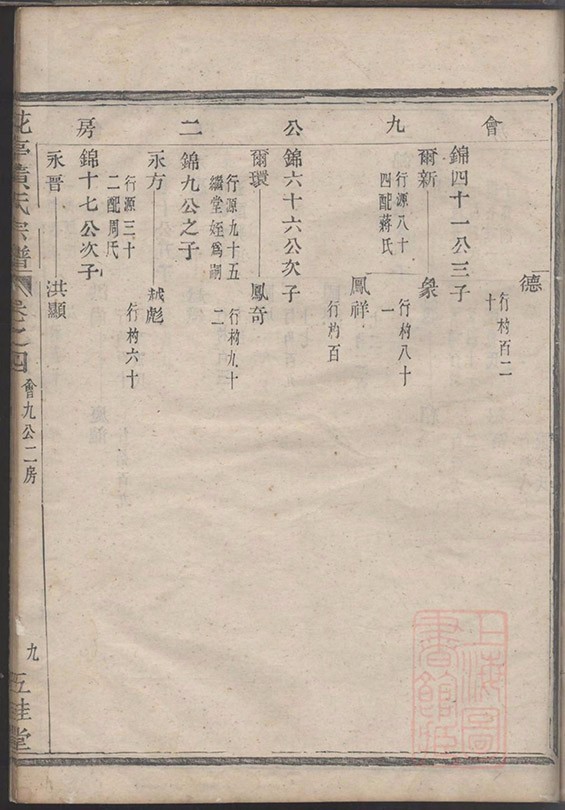 會九公二房
德
行杓百二
十
錦四十一公三子
爾新 象
行源八十
四配蔣氏
行杓八十
一
鳳祥
行杓百
錦六十六公次子
爾環 鳳奇
行源九十五
繼堂姪為嗣
行杓九十
二
錦九公之子
永方 越彪
行源三十
二配周氏
行杓六十
錦十七公次子
永晋 洪顯
花亭黃氏宗譜 卷之四 會九公二房 九 五桂堂
上海圖書館藏